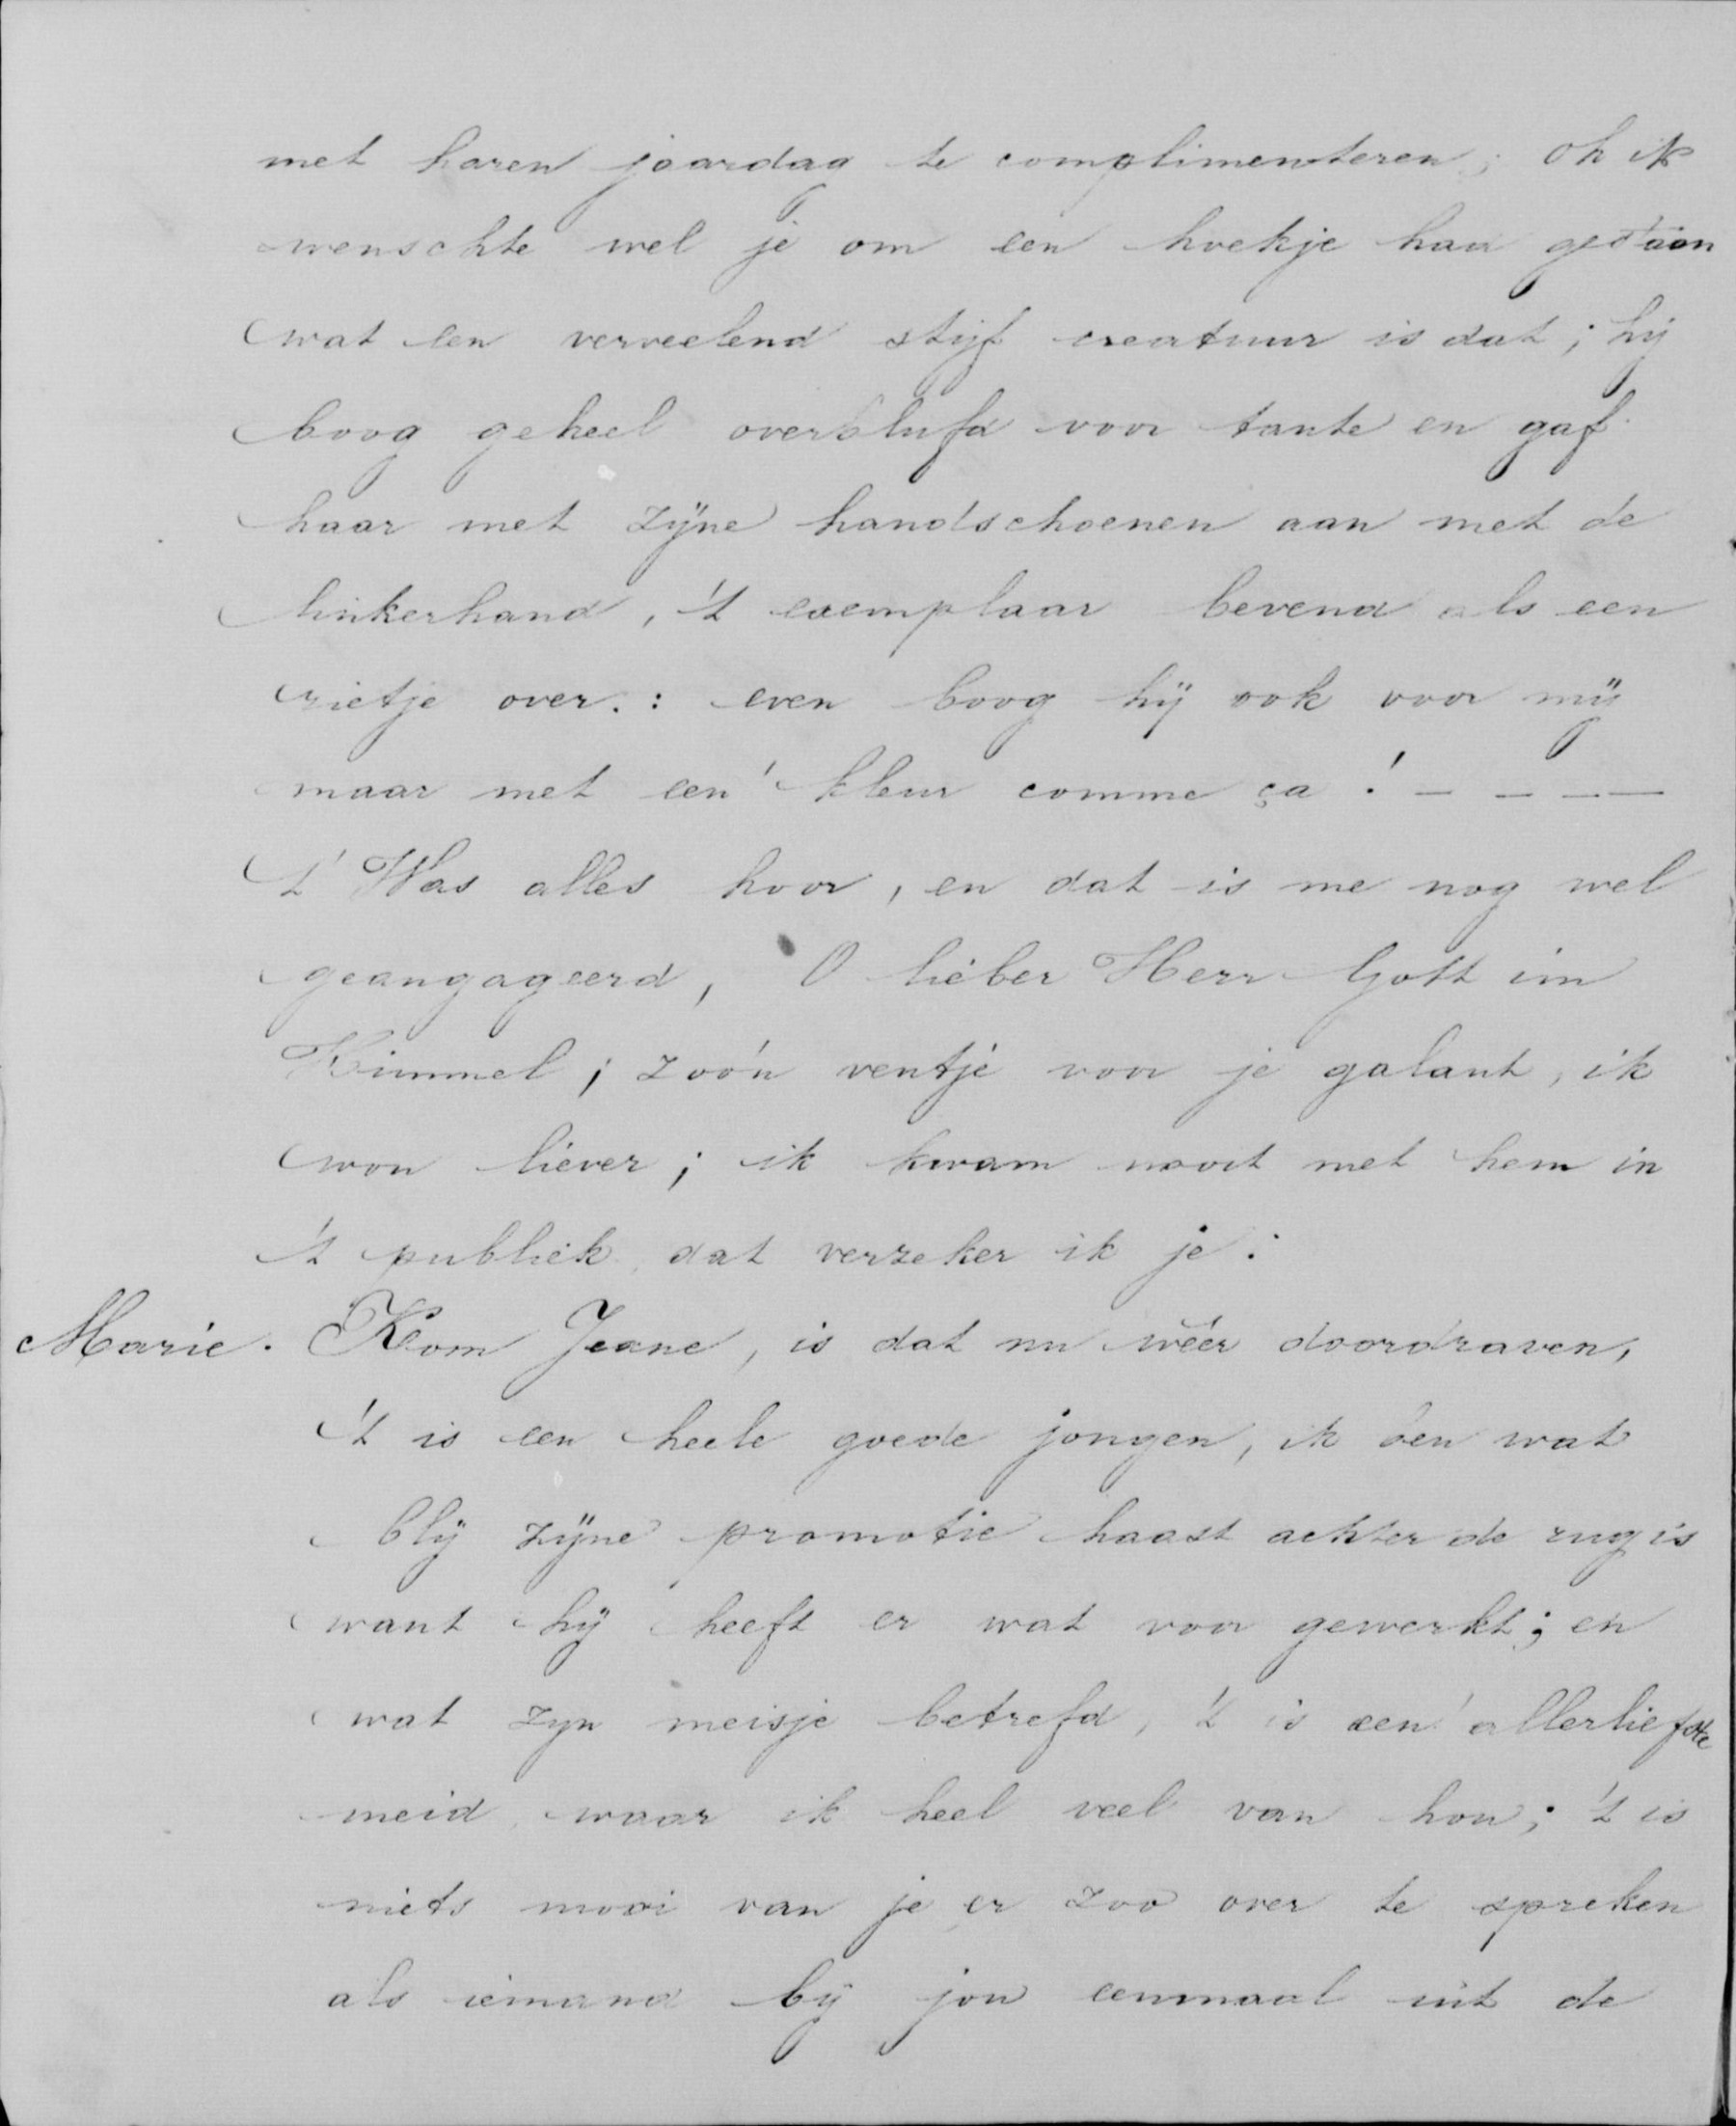 met haren jaardag te complimenteren; oh ik
wenschte wel je om een hoekje had gestaan
wat een verveelend stijf creatuur is dat; hij
boog geheel overblufd voor tante en gaf
haar met zijne handschoenen aan met de
linkerhand, 't exemplaar bevend als een
rietje over.: even boog hij ook voor mij
maar met een' kleur comme ça! – – – –
't Was alles hoor, en dat is me nog wel
geangageerd, O lieber Herr Gott im
Himmel; zoó'n ventje voor je galant, ik
wou liever; ik kwam nooit met hem in
't publiek, dat verzeker ik je:
Marie. Kom Jeane, is dat nu wéér doordraven,
't is een heele goede jongen, ik ben wat
blij zijne promotie haast achter de rug is
want hij heeft er wat voor gewerkt; en
wat zyn meisje betrefd, 't is een' allerliefste
meid, waar ik heel veel van hou; 't is
niets mooi van je er zoo over te spreken
als iemand bij jou eenmaal uit de